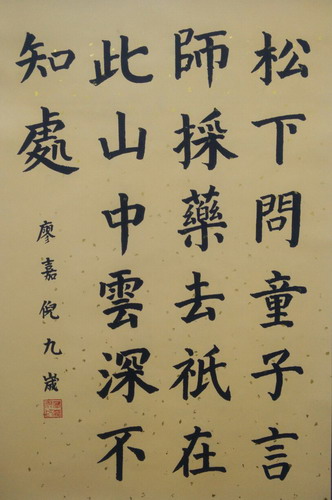 松下問童子言
師採藥去祇在
此山中雲深不
知處
廖嘉倪九歲